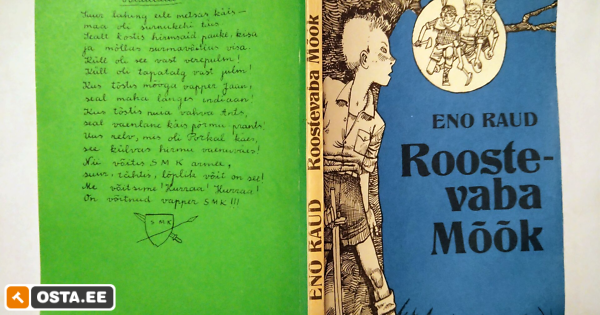 Suur lahing eile metsas käis –
maa oli surnukehi täis.
Sealt kostis hirmsaid pauke, kisa
ja möllas surmavõitlus visa.
Küll oli see vast verepulm!
Küll oli tapatalg vast julm!
Kus tõstis mõõga vapper Jaan,
seal maha langes indiaan.
Kus tõstis nuia vahva Ants,
seal vaenlane käis põrmu prants!
Uus relv, mis oli Volkal käes,
see külvas hirmu vaenuväes!
Nii võitis SMK armee,
suur, tähtis, lõplik võit on see!
Me võitsime! Hurraa! Hurraa!
On võitnud vapper SMK!!!
SMK
ENO RAUD Roostevaba Mõõk
ENO RAUD
Rooste-
vaba
Mõõk
OSTA.EE